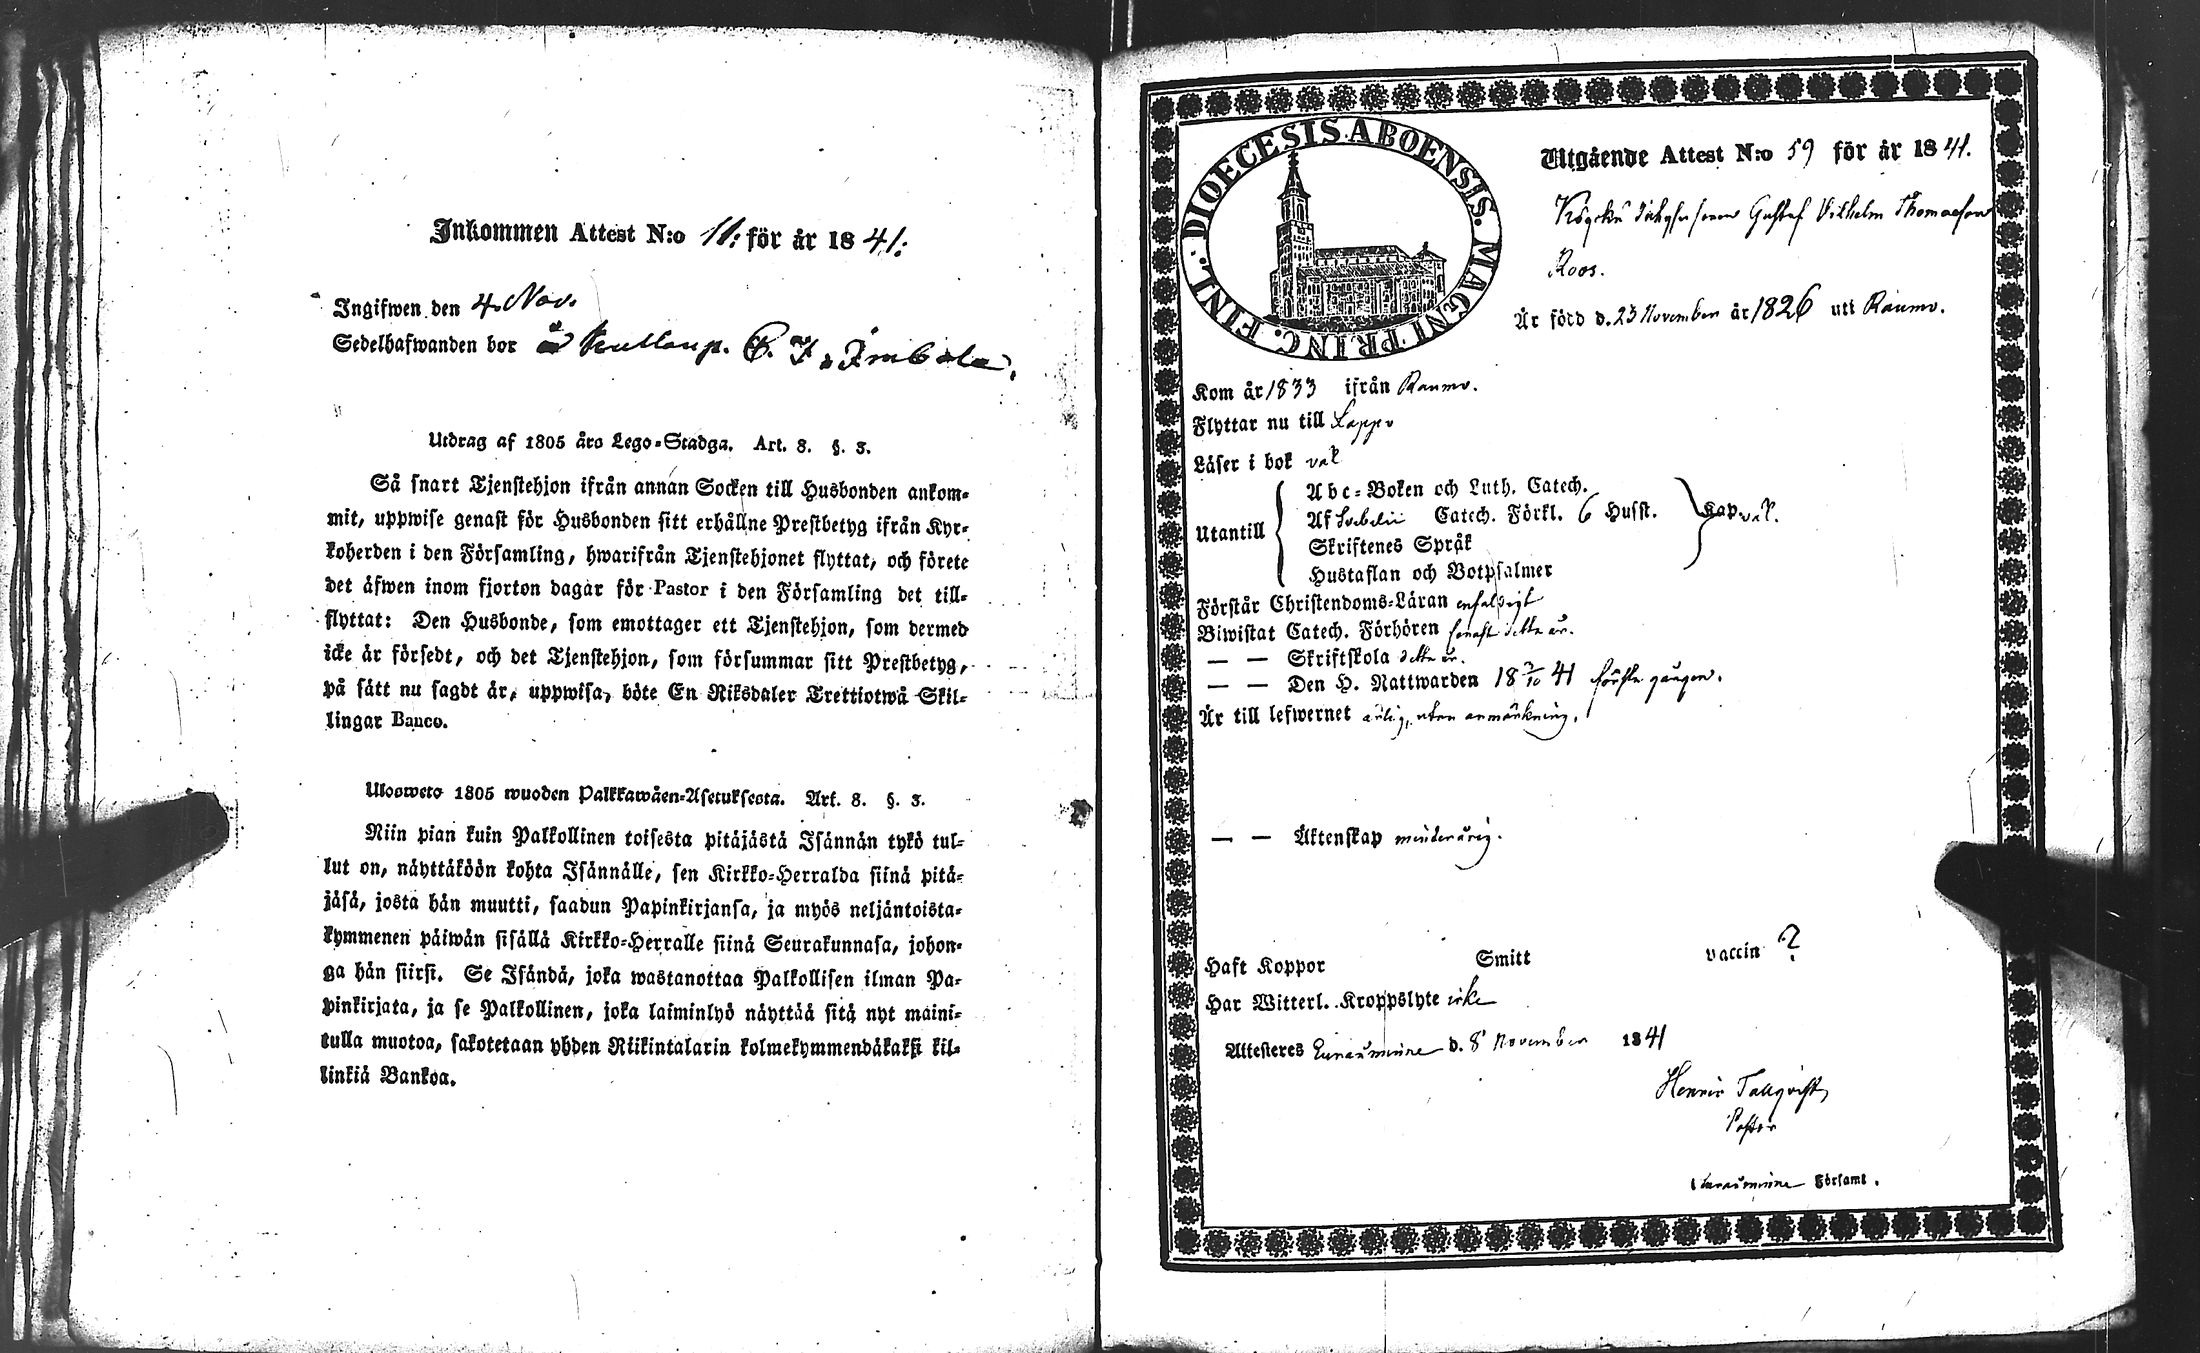 Inkommen Attest N:o 11: för år 1841:
Ingifwen den 4 Nov.
Sedelhafwanden bor å
Utdrag af 1805 års Lego-Stadga. Art. 8. §. 3.
Så snart Tjenstehjon ifrån annan Socken till Husbonden ankom-
mit, uppwise genast för Husbonden sitt erhållne Prestbetyg ifrån Kyr-
koherden i den Församling, hwarifrån Tjenstehjonet flyttat, och förete
det äfwen inom fjorton dagar för Pastor i den Församling det till-
flyttat: Den Husbonde, som emottager ett Tjenstehjon, som dermed
icke är försedt, och det Tjenstehjon, som försummar sitt Prestbetyg,
på sätt nu sagdt är, uppwisa, böte En Riksdaler Trettiotwå Skil-
lingar Banco.
Ulosweto 1805 wuoden Palkkawäen-Asetuksesta. Art. 8. §. 3.
Niin pian kuin Palkollinen toisesta pitäjästä Isännän tykö tul-
lut on, näyttäköön kohta Isännälle, sen Kirkko-Herralda siinä pitä-
jäsä, josta hän muutti, saadun Papinkirjansa, ja myös neljäntoista-
kymmenen päiwän sisällä Kirkko-Herralle siinä Seurakunnasa, johon-
ga hän siirsi. Se Isändä, joka wastanottaa Palkollisen ilman Pa-
pinkirjata, ja se Palkollinen, joka laiminlyö näyttää sitä nyt maini-
tulla muotoa, sakotetaan yhden Riikintalarin kolmekymmendäkaksi kil-
linkiä Bankoa.
DIOECESIS ABOENSIS. MAGNI PRINC. FINL.
Utgående Attest N:o 59 för år 1841.
Gustaf Vilhelm Thomaeson
Roos.
Är född d. 23 November år 1826 uti Raumo.
Kom år 1833 ifrån Raumo.
Flyttar nu till Lappo
Läser i bok väl
Utantill
Abc-Boken och Luth. Catech.
Af Svebelii Catech. Förkl. 6 Husst. Kap. väl.
Skriftenes Språk
Hustaflan och Botpsalmer
Förstår Christendoms-Läran enfaldigt
Biwistat Catech. Förhören senast detta år.
— — Skriftskola detta år.
— — Den H. Nattwarden 18 3/10 41 första gången.
Är till lefwernet ärlig, utan anmärkning.
— — Äktenskap minderårig.
Haft Koppor Smitt vaccin ?
Har Witterl. Kroppslyte icke
Attesteres Euraåminne d. 8 November 1841
Henric Tallqvist
Pastor
i Euraåminne Församl.